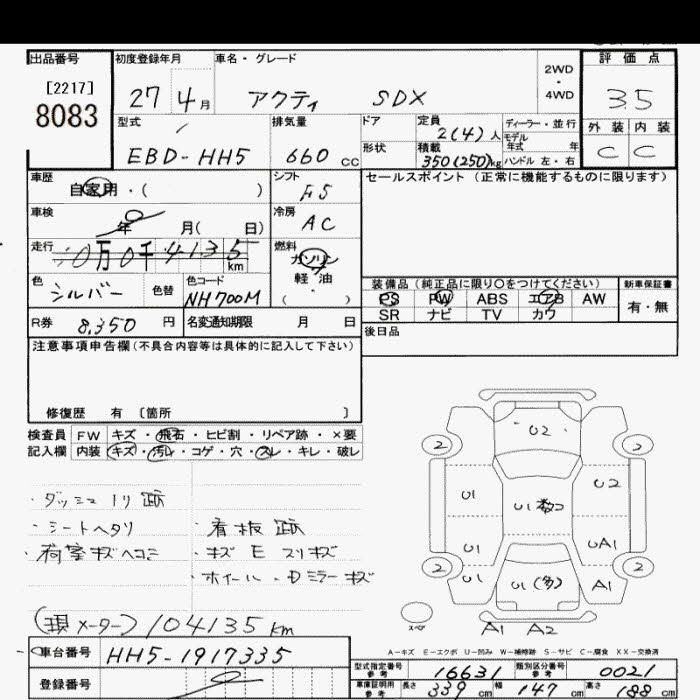 出品番号
[2217]
8083
初度登録年月
27 4月
車名・グレード
アクティ SDX
2WD
・
4WD
評価点
3.5
外装 内装
C C
型式
EBD-HH5
排気量
660 cc
ドア
形状
定員
2(4)人
積載
350(250)kg
ディーラー・並行
モデル
年式 年
ハンドル 左・右
車歴
自家用・( )
シフト
F5
セールスポイント (正常に機能するものに限ります)
車検
年 月( 日)
冷房
AC
走行
0万0千4135
km
燃料
ガソリン
軽・油
( ・ )
色
シルバー
色替
色コード
NH700M
装備品 (純正品に限り○をつけてください)
PS PW ABS エアB AW
SR ナビ TV カワ
新車保証書
有・無
R券 8.350 円
名変通知期限 月 日
後日品
注意事項申告欄(不具合内容等は具体的に記入して下さい)
修復歴 有 〔箇所 〕
検査員 FW キズ・飛石・ヒビ割・リペア跡・×要
記入欄 内装 キズ・汚レ・コゲ・穴・スレ・キレ・破レ
・ダッシュ ノリ跡
・シートヘタリ
・荷室キズヘコミ
・看板跡
・キズ E スリキズ
・ホイール・Dミラーキズ
(現メーター) 104135 km
U2
2 2
U1 U1数コ U2
U1 UA1
2 2
U1 U1(多) A1
スペア
A1 A2
A−キズ E−エクボ U−凹み W−補修跡 S−サビ C−腐食 XX−交換済
車台番号 HH5-1917335
登録番号
型式指定番号
参考
16631
類別区分番号
参考
0021
車庫証明用
参考
長さ 339 cm 幅 147 cm 高さ 188 cm